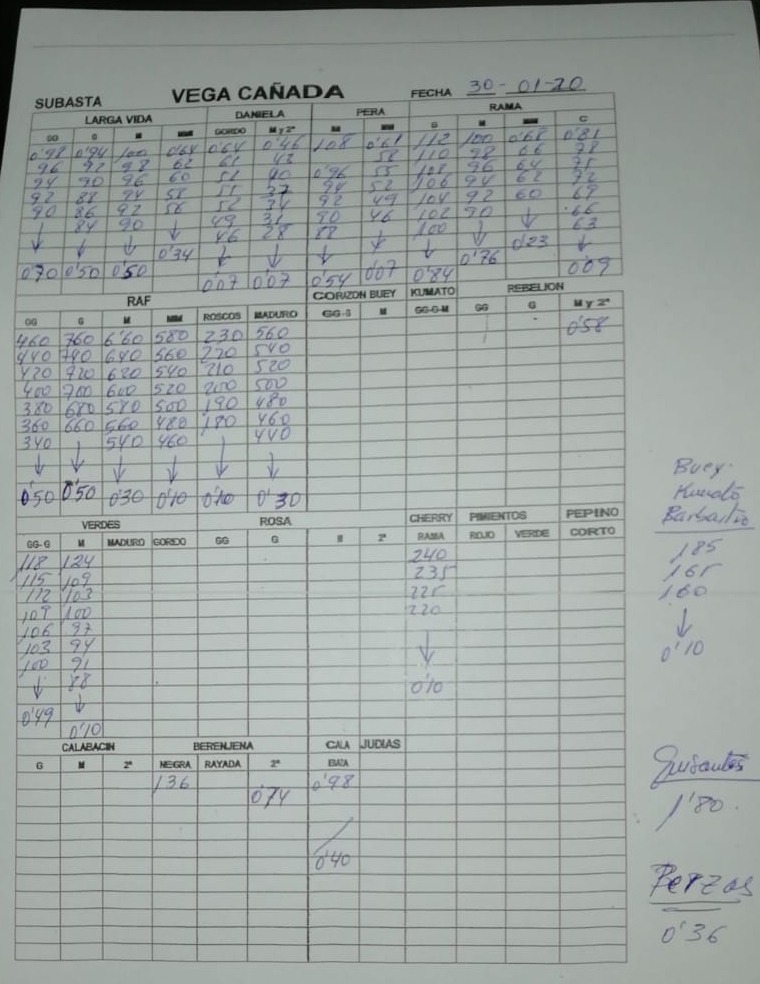 SUBASTA VEGA CAÑADA FECHA 30-01-20
LARGA VIDA DANIELA PERA RAMA
GG G M MM GORDO M y 2ª M MM G M MM C
0'98 0'94 100 0'64 0'64 0'46 108 0'61 112 100 0'68 0'81
96 92 98 62 61 43 58 110 98 66 78
94 90 96 60 40 0'96 55 108 96 64 75
92 88 94 58 55 37 94 52 106 94 62 72
90 86 92 56 52 34 92 49 104 92 60 69
↓ 84 90 ↓ 49 31 90 46 102 90 ↓ 66
↓ ↓ 0'34 46 28 88 ↓ 100 ↓ 0'23 63
↓ ↓ ↓ ↓ 0'76 ↓
0'70 0'50 0'50 0'07 0'07 0'54 0'07 0'84 0'09
RAF CORIZON BUEY KUMATO REBELION
GG G M MM ROSCOS MADURO GG-G M GG-G-M GG G M y 2ª
460 760 6'60 580 230 560 0'58
440 740 640 560 220 540
420 720 620 540 210 520
400 700 600 520 200 500
380 680 580 500 190 480
360 660 560 480 180 460
340 540 460 440
↓ ↓ ↓ ↓ ↓ ↓
0'50 0'50 0'30 0'10 0'10 0'30
VERDES ROSA CHERRY PIMIENTOS PEPINO
GG-G M MADURO GORDO GG G M 2ª RAMA ROJO VERDE CORTO
118 124 240
115 109 235
112 103 225
109 100 220
106 97
103 94 ↓
100 91
↓ 88 0'10
0'49 ↓
0'10
CALABACIN BERENJENA CALA JUDIAS
G M 2ª NEGRA RAYADA 2ª BAZA
136 0'74 0'98
0'40
Buey
Kumato
185
165
160
↓
0'10
Guisantes
1'80
Berzas
0'36